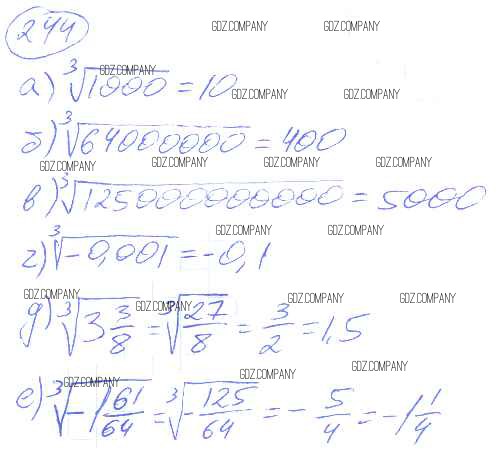 244
GDZ.COMPANY GDZ.COMPANY
GDZ.COMPANY
а) ∛1000 = 10
GDZ.COMPANY GDZ.COMPANY
б) ∛64000000 = 400
GDZ.COMPANY GDZ.COMPANY GDZ.COMPANY GDZ.COMPANY
в) ∛125000000000 = 5000
GDZ.COMPANY GDZ.COMPANY
г) ∛-0,001 = -0,1
GDZ.COMPANY GDZ.COMPANY GDZ.COMPANY GDZ.COMPANY
д) ∛3 3/8 = ∛27/8 = 3/2 = 1,5
GDZ.COMPANY GDZ.COMPANY GDZ.COMPANY
е) ∛-1 61/64 = ∛-125/64 = - 5/4 = -1 1/4